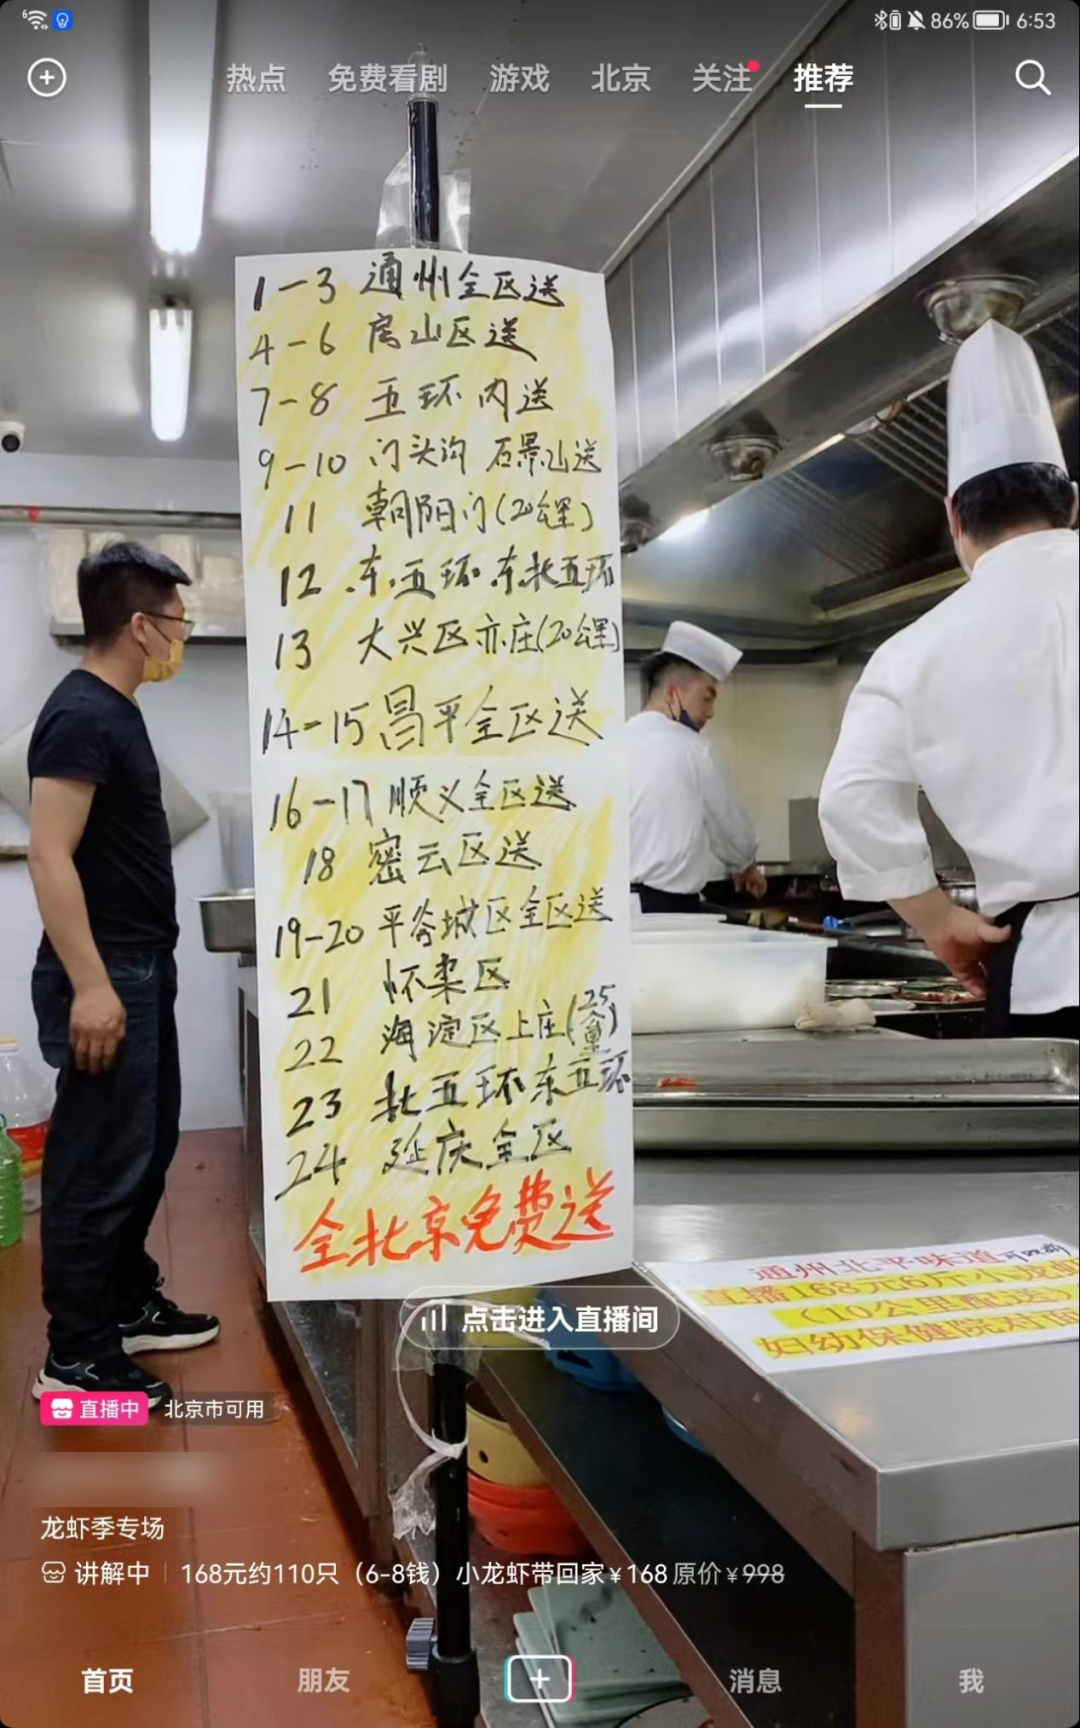 6
86%
6:53
热点 免费看剧 游戏 北京 关注 推荐
1-3 通州全区送
4-6 房山区送
7-8 五环内送
9-10 门头沟 石景山送
11 朝阳门(20公里)
12 东五环 东北五环
13 大兴区亦庄(20公里)
14-15 昌平全区送
16-17 顺义全区送
18 密云区送
19-20 平谷城区全区送
21 怀柔区
22 海淀区上庄(25公里)
23 北五环东五环
24 延庆全区
全北京免费送
通州北平味道
直播168元6斤小龙虾
(10公里配送)
妇幼保健院对面
点击进入直播间
直播中 北京市可用
龙虾季专场
讲解中 | 168元约110只（6-8钱）小龙虾带回家¥168 原价¥998
首页 朋友 消息 我